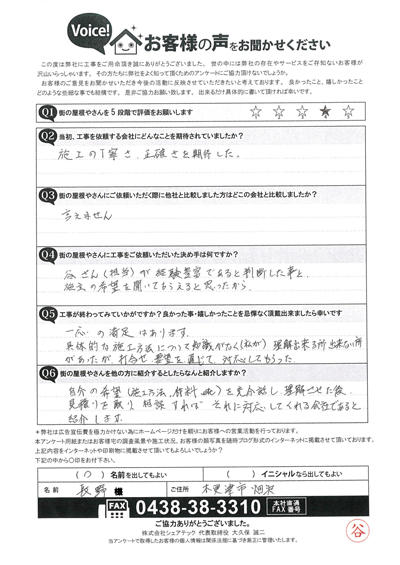 Voice!
お客様の声をお聞かせください
この度は弊社に工事をご用命頂き誠にありがとうございました。世の中には弊社の存在やサービスをご存知ないお客様が
沢山いらっしゃいます。その方たちに弊社をよく知って頂くためのアンケートにご協力頂けないでしょうか。
お客様のご意見をお聞かせいただき今後の活動に反映させていただきたいと考えております。良かったこと、嬉しかったこと
どのような些細な事でも結構です。是非ご協力お願い致します。出来るだけ具体的に書いて頂ければ幸いです。
Q1 街の屋根やさんを5段階で評価をお願いします
☆ ☆ ☆ ★ ☆
Q2 当初、工事を依頼する会社にどんなことを期待されていましたか?
施工の丁寧さ、正確さを期待した。
Q3 街の屋根やさんにご依頼いただく際に他社と比較しました方はどこの会社と比較しましたか?
言えません
Q4 街の屋根やさんに工事をご依頼いただいた決め手は何ですか?
谷さん(担当)が経験豊富であると判断した事と、
施主の希望を聞いてもらえると思ったから。
Q5 工事が終わってみていかがですか?良かった事・嬉しかったことを忌憚なく頂戴出来ましたら幸いです
一応の満足はあります。
具体的な施工方法について知識がなく(私が)理解出来る所出来ない所
があったが、打合せ、要望を通じて、対応してもらった。
Q6 街の屋根やさんを他の方に紹介するとしたらなんと紹介しますか?
自分の希望(施工方法、材料 etc)を充分話し、理解させた後、
見積りを取り、相談すれば、それに対応してくれる会社であると
紹介します。
*弊社は広告宣伝費を極力かけない為にホームページだけを頼りにお客様への営業活動を行っております。
本アンケート用紙またはお客様宅の調査風景や施工状況、お客様の顔写真を随時ブログ形式のインターネットに掲載させて頂いております。
上記内容をインターネットや印刷物に掲載させて頂いてもよろしいでしょうか?
下記の中から〇印をお付け下さい。
(〇)名前を出してもよい ( )イニシャルなら出してもよい
名前 長野 様 ご住所 木更津市畑沢
FAX 0438-38-3310 本社直通FAX番号
ご協力ありがとうございました。
株式会社シェアテック 代表取締役 大久保 誠二
当アンケートで取得したお客様の個人情報は関係法令に基づき厳正に管理いたします。
谷